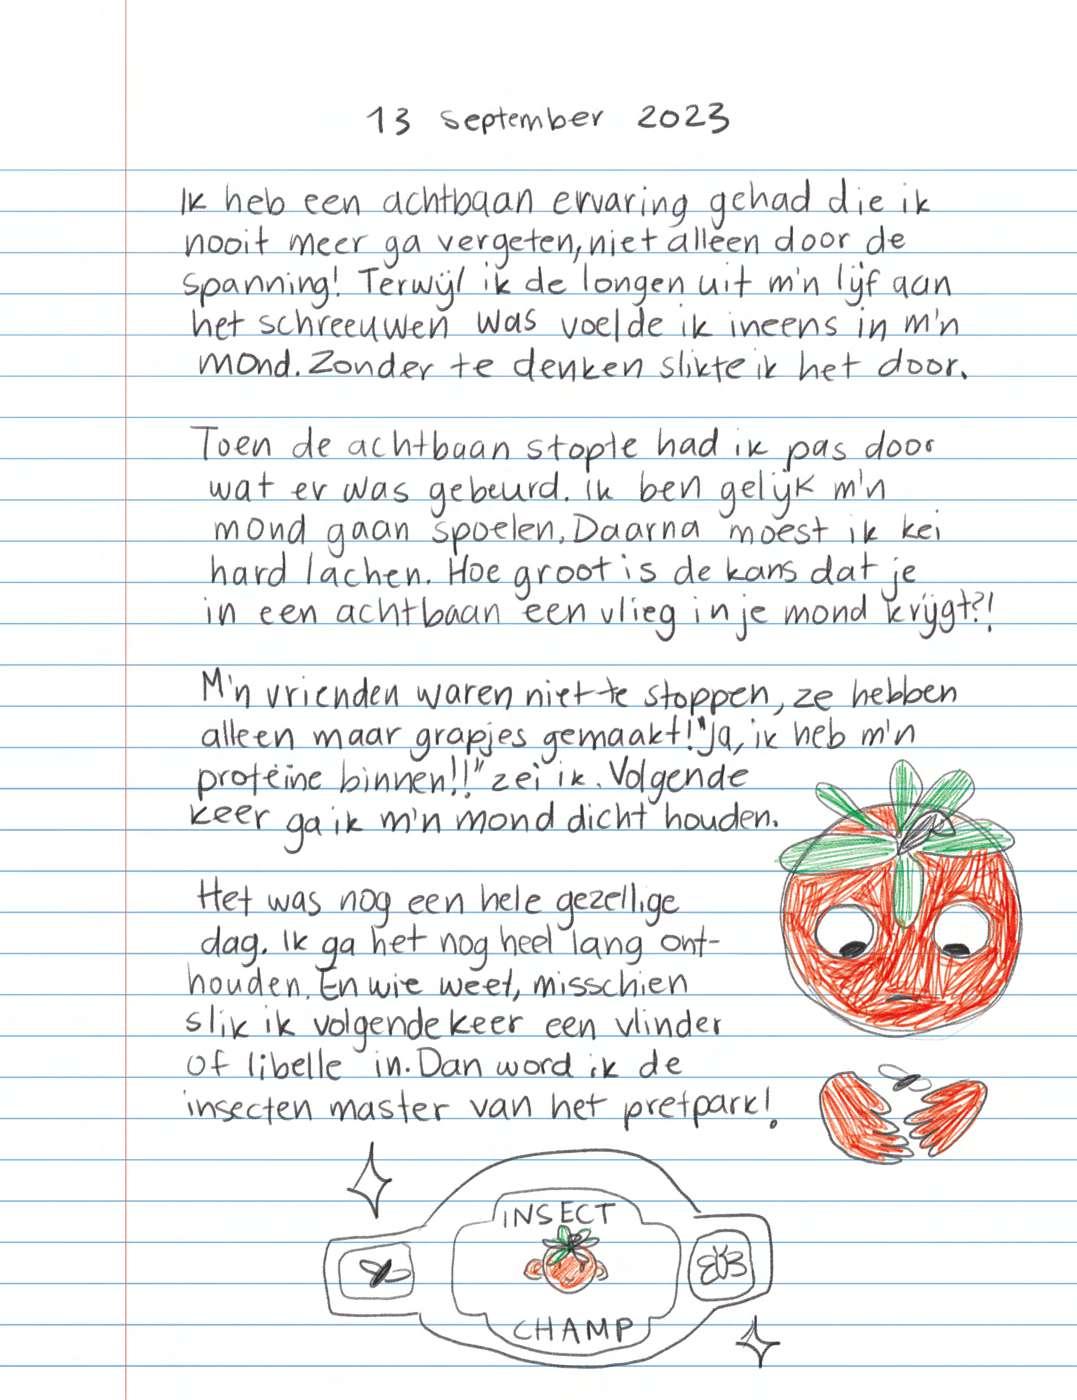 13 september 2023
Ik heb een achtbaan ervaring gehad die ik
nooit meer ga vergeten, niet alleen door de
spanning! Terwijl ik de longen uit m'n lijf aan
het schreeuwen was voelde ik ineens in m'n
mond. Zonder te denken slikte ik het door.
Toen de achtbaan stopte had ik pas door
wat er was gebeurd. Ik ben gelijk m'n
mond gaan spoelen. Daarna moest ik kei
hard lachen. Hoe groot is de kans dat je
in een achtbaan een vlieg in je mond krijgt?!
M'n vrienden waren niet te stoppen, ze hebben
alleen maar grapjes gemaakt! "Ja, ik heb m'n
proteïne binnen!!" zei ik. Volgende
keer ga ik m'n mond dicht houden.
Het was nog een hele gezellige
dag. Ik ga het nog heel lang ont-
houden. En wie weet, misschien
slik ik volgende keer een vlinder
of libelle in. Dan word ik de
insecten master van het pretpark!
INSECT
CHAMP